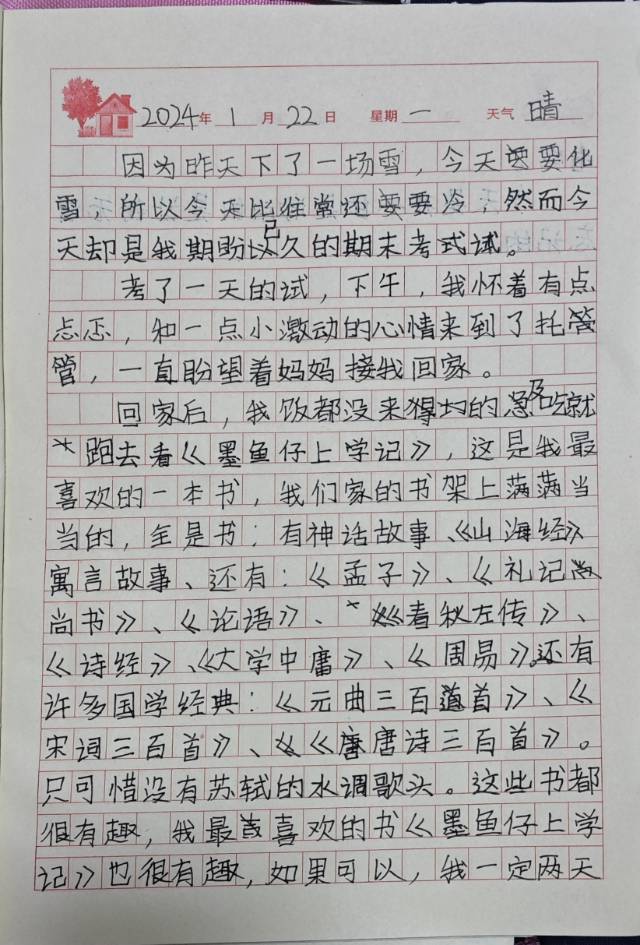 2024年1月22日 星期一 天气晴
因为昨天下了一场雪，今天要化
雪，所以今天比往常还要冷，然而今
天却是我期盼已久的期末考试。
考了一天的试，下午，我怀着有点
忐忑，和一点小激动的心情来到了托管
管，一直盼望着妈妈接我回家。
回家后，我饭都没来得均的急及吃就
跑去看《墨鱼仔上学记》，这是我最
喜欢的一本书，我们家的书架上满满当
当的，全是书；有神话故事、《山海经》
寓言故事、还有：《孟子》、《礼记
尚书》、《论语》、《春秋左传》、
《诗经》、《大学中庸》、《周易》。还有
许多国学经典：《元曲三百首》、《
宋词三百首》、《唐诗三百首》。
只可惜没有苏轼的水调歌头。这些书都
很有趣，我最喜欢的书《墨鱼仔上学
记》也很有趣，如果可以，我一定两天